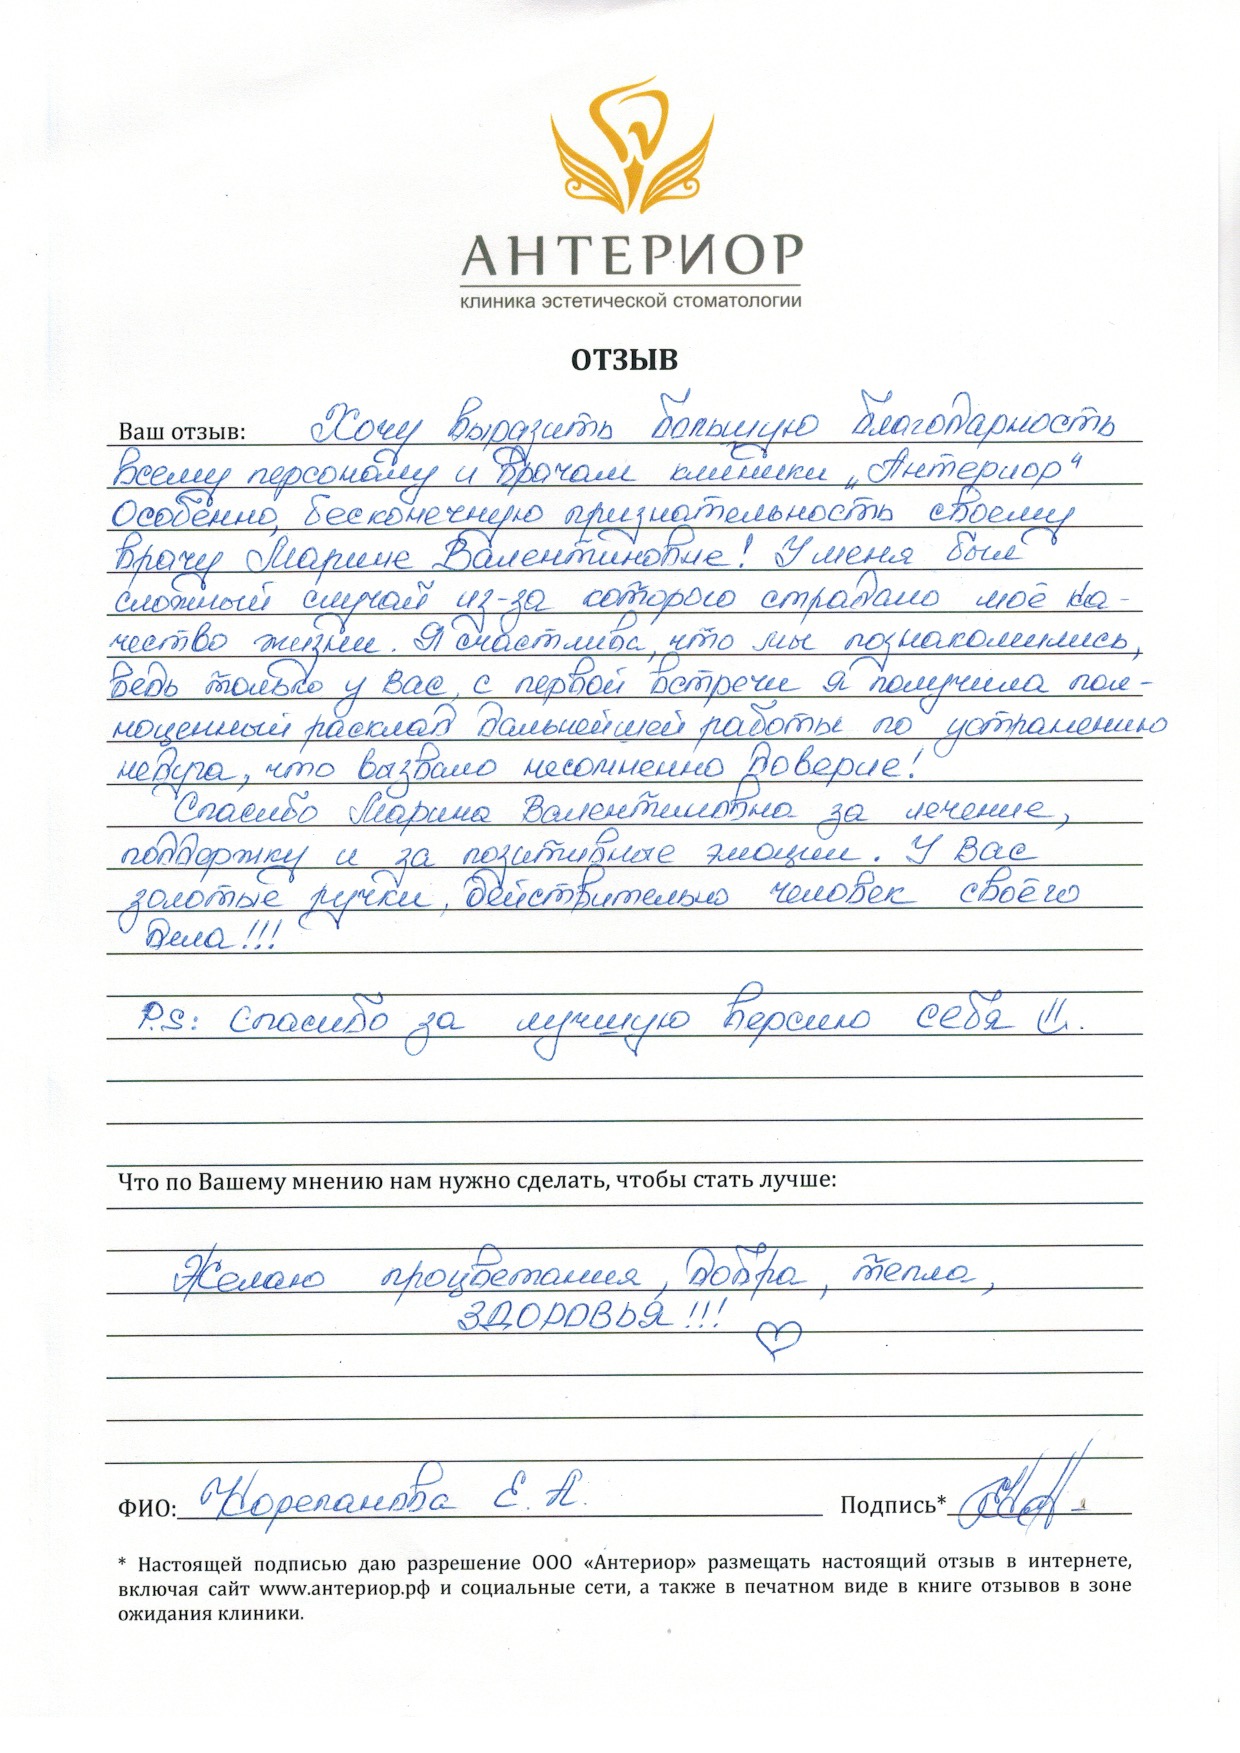 АНТЕРИОР
клиника эстетической стоматологии
ОТЗЫВ
Ваш отзыв: Хочу выразить большую благодарность
всему персоналу и врачам клиники „Антериор"
Особенно, бесконечную признательность своему
врачу Марине Валентиновне! У меня был
сложный случай из-за которого страдало моё ка-
чество жизни. Я счастлива, что мы познакомились,
ведь только у Вас, с первой встречи я получила пол-
ноценный расклад дальнейшей работы по устранению
недуга, что вызвало несомненно доверие!
Спасибо Марина Валентиновна за лечение,
поддержку и за позитивные эмоции. У Вас
золотые ручки, действительно человек своего
дела!!!
P.S: Спасибо за лучшую версию себя
Что по Вашему мнению нам нужно сделать, чтобы стать лучше:
Желаю процветания, добра, тепла,
ЗДОРОВЬЯ!!!
ФИО: Корепанова Е. А. Подпись*
* Настоящей подписью даю разрешение ООО «Антериор» размещать настоящий отзыв в интернете,
включая сайт www.антериор.рф и социальные сети, а также в печатном виде в книге отзывов в зоне
ожидания клиники.